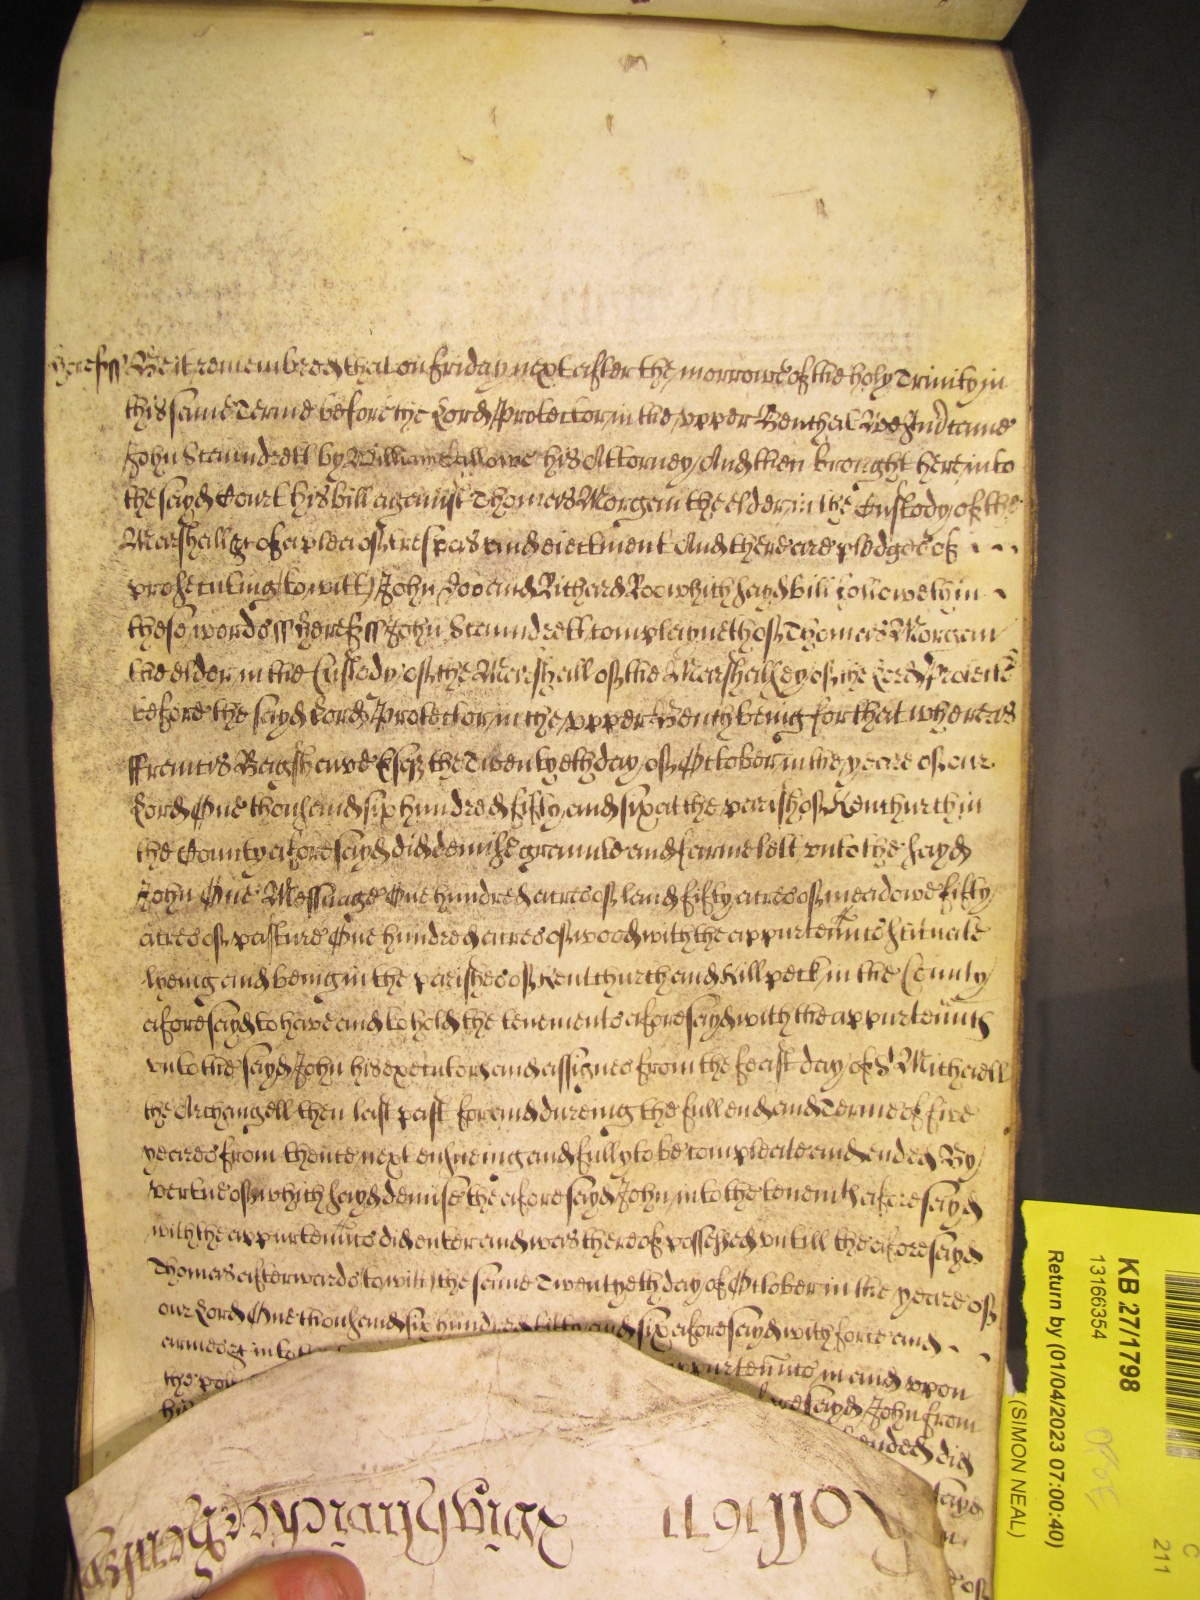 Herefss Be it remembred that on Friday next after the morrowe of the holy Trinity in
this same Terme before the Lord Protector in the upper Bench at
John Scaundrett by William Callowe his Attorney And then brought here into
the sayd Court his bill against Thomas Morgan the elder in the Custody of the
Marshall &c of a plea of trespas and eiectment And there are pledges of
prosecuting (to witt) John Doo and Richard Roo which sayd bill followeth in
these words ss Herefss John Scaundrett complayneth of Thomas Morgan
the elder in the Custody of the Marshall of the Marshallsey of the Lord Protector
before the sayd Lord Protector in the upper Bench being for that whereas
Francis Bagshawe Esqr the Twentyeth day of October in the yeare of our
Lord One thousand six hundred fifty and six at the parish of Kenchurch in
the County aforesayd did demise graunte and farme lett unto the sayd
John One Messuage One hundred acres of land fifty acres of meadowe fifty
acres of pasture One hundred acres of wood with the appurtennces scituate
lyeing and being in the parishes of Kentchurch and Killpeck in the County
aforesayd to have and to hold the tenements aforesayd with the appurtennces
unto the sayd John his executors and assignes from the feast day of St Michaell
the Archangell then last past for and dureing the full end and Terme of five
yeares from thence next ensueing and fully to be compleate and ended By
vertue of which sayd demise the aforesayd John into the tenemts aforesayd
with the appurtennces did enter and was thereof possessed untill the aforesayd
Thomas afterwards to witt the same Twentyeth day of October in the yeare of
our Lord One thousand six hundred fifty and six aforesayd with force and
armes &c into appurtennces in and upon
the aforesayd John from
his ended did
sayd
KB 27/1798
13166354
Return by (01/04/2023 07:00:40)
(SIMON NEAL)
C
211